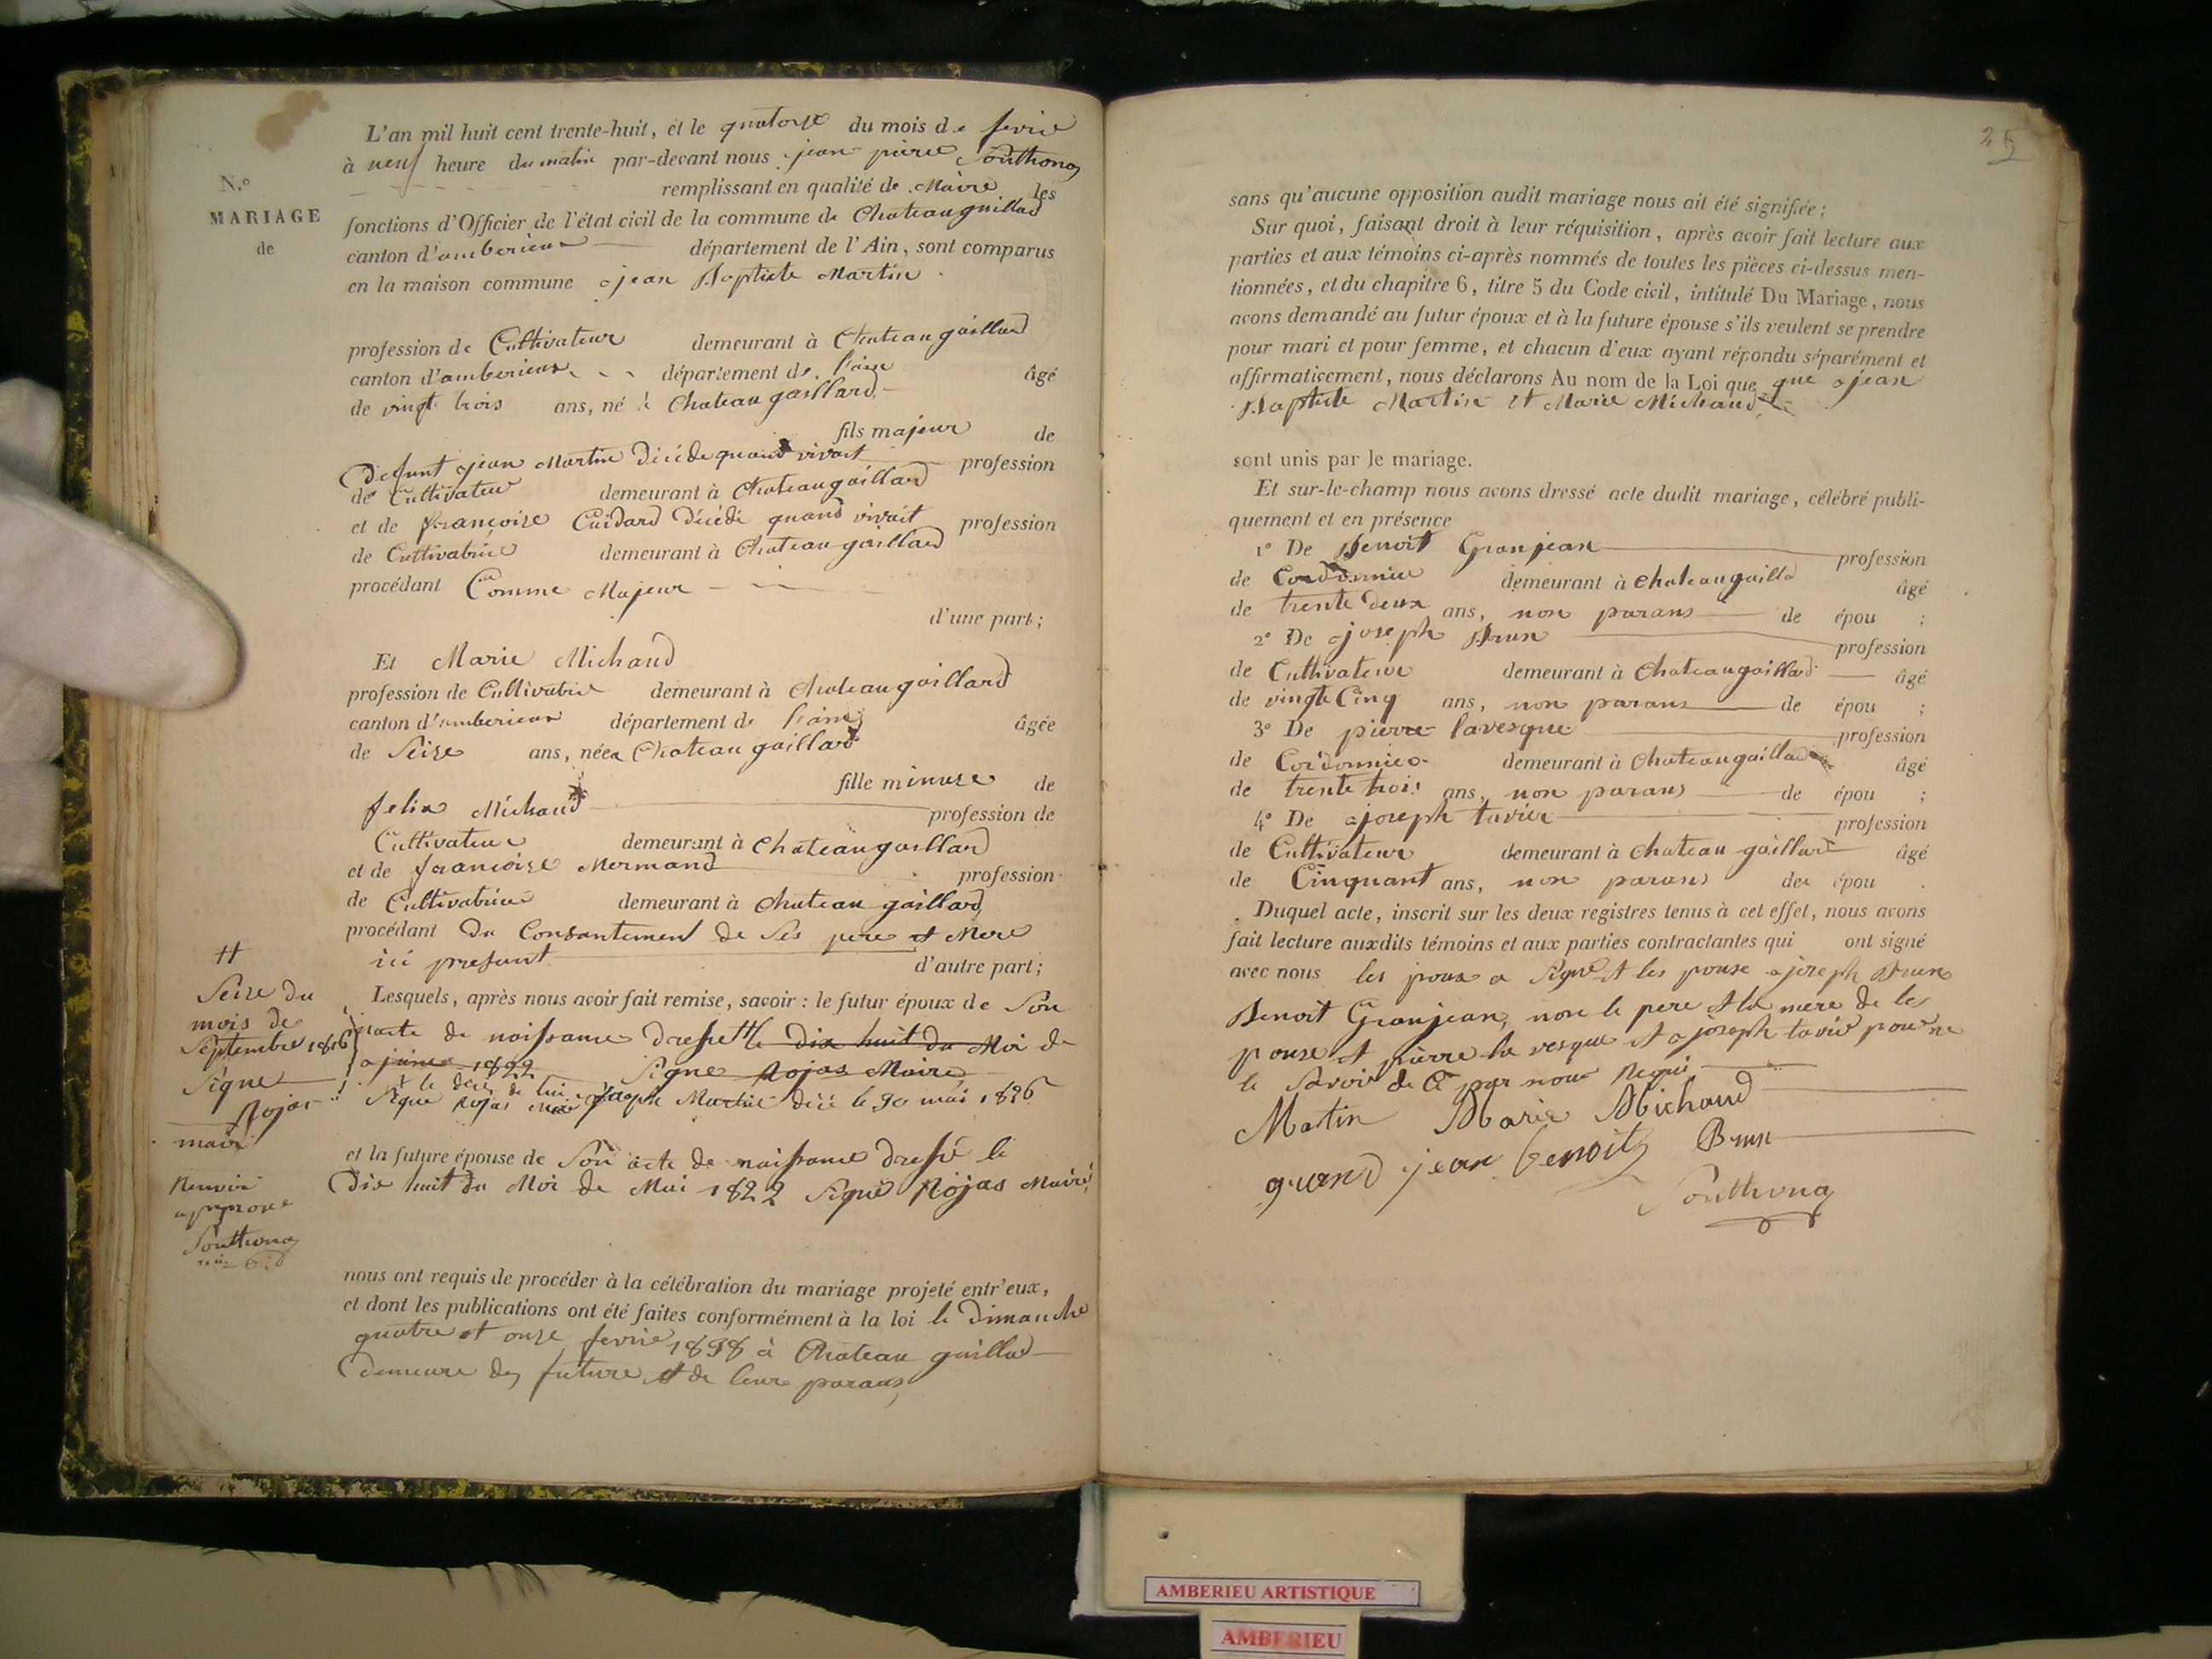 L'an mil huit cent trente-huit, et le quatorse du mois de fevrie
à neuf heure du matin par-devant nous jean pierre Southonas
remplissant en qualité de Maire les
N.º
MARIAGE
de
fonctions d'Officier de l'état civil de la commune de Chateaugaillard
canton d'amberieux département de l'Ain, sont comparus
en la maison commune jean Baptiste Martin
profession de Cultivateur demeurant à Chateaugaillard
canton d'amberieux département de l'ain âgé
de vingt trois ans, né à Chateaugaillard
fils majeur de
Defunt jean Martin décéde quand vivait profession
de Cultivateur demeurant à Chateaugaillard
et de françoise Cuidard décédé quand vivait profession
de Cultivatrice demeurant à Chateaugaillard
procédant Comme Majeur
d'une part;
Et Marie Michaud
profession de Cultivatrice demeurant à Chateaugaillard
canton d'amberieux département de l'ain âgée
de Seise ans, née a Chateaugaillard
fille minure de
felix Michaud profession de
Cultivateur demeurant à Chateaugaillard
et de françoise Mermand profession
de Cultivatrice demeurant à Chateau gaillard
procédant du Consantement de Ses pere et Mere
ici presant d'autre part;
Lesquels, après nous avoir fait remise, savoir: le futur époux de Son
acte de naissance dressé # le dix huit du Moi de
1822 Signe Rojas Maire
Signe Rojas Maire Martin décé le 30 mai 1836
et la future épouse de Son acte de naissance dressé le
Dix huit du Moi de Mai 1822 Signé Rojas Maire
#
Seise du
mois de
Septembre 1816
Signe
Rojas
maire
Renvoi
approuve
Southonas
nous ont requis de procéder à la célébration du mariage projeté entr'eux,
et dont les publications ont été faites conformément à la loi le Dimanche
quatre et onse fevrie 1838 à Chateau gaillard
demeure des future et de leure parans
25
sans qu'aucune opposition audit mariage nous ait été signifiée;
Sur quoi, faisant droit à leur réquisition, après avoir fait lecture aux
parties et aux témoins ci-après nommés de toutes les pièces ci-dessus men-
tionnées, et du chapitre 6, titre 5 du Code civil, intitulé Du Mariage, nous
avons demandé au futur époux et à la future épouse s'ils veulent se prendre
pour mari et pour femme, et chacun d'eux ayant répondu séparément et
affirmativement, nous déclarons Au nom de la Loi que que jean
Baptiste Martin et Marie Michaud
sont unis par le mariage.
Et sur-le-champ nous avons dressé acte dudit mariage, célébré publi-
quement et en présence
1º De Benoit Granjean profession
de Cordonnier demeurant à chateaugaillard âgé
de trente deux ans, non parans de épou ;
2º De joseph Brun profession
de Cultivateur demeurant à Chateaugaillard âgé
de vingt Cinq ans, non parans de épou ;
3º De pierre lavesque profession
de Cordonnier demeurant à Chateaugaillard âgé
de trente trois ans, non parans de épou ;
4º De joseph tavier profession
de Cultivateur demeurant à chateau gaillard âgé
de Cinquant ans, non parans de épou .
Duquel acte, inscrit sur les deux registres tenus à cet effet, nous avons
fait lecture auxdits témoins et aux parties contractantes qui ont signé
avec nous les poux a Signé et les pouse joseph Brun
Benoit Granjean, non le pere et la mere de les
pouse et pierre la vesque et joseph tavié pour ne
le Savoir de Ce par nous Requi
Martin Marie Michaud
grand jean benoit Brun
Southonas
AMBERIEU ARTISTIQUE
AMBERIEU